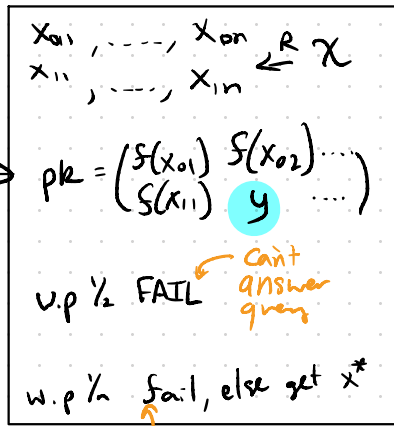 x₀₁, ......, x₀ₙ
x₁₁, ......, x₁ₙ ←ᴿ 𝒳
pk = ( f(x₀₁) f(x₀₂) ....
f(x₁₁) y .... )
can't
w.p ½ FAIL ← answer
query
w.p 1/n fail, else get x*